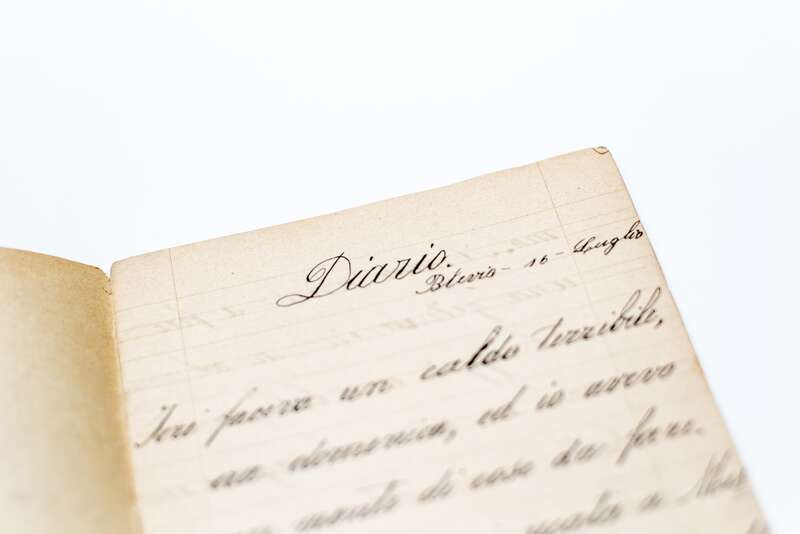 Diario.
Blevio - 16 - Luglio
Ieri faceva un caldo terribile,
era domenica, ed io avevo
un monte di cose da fare.
andata a